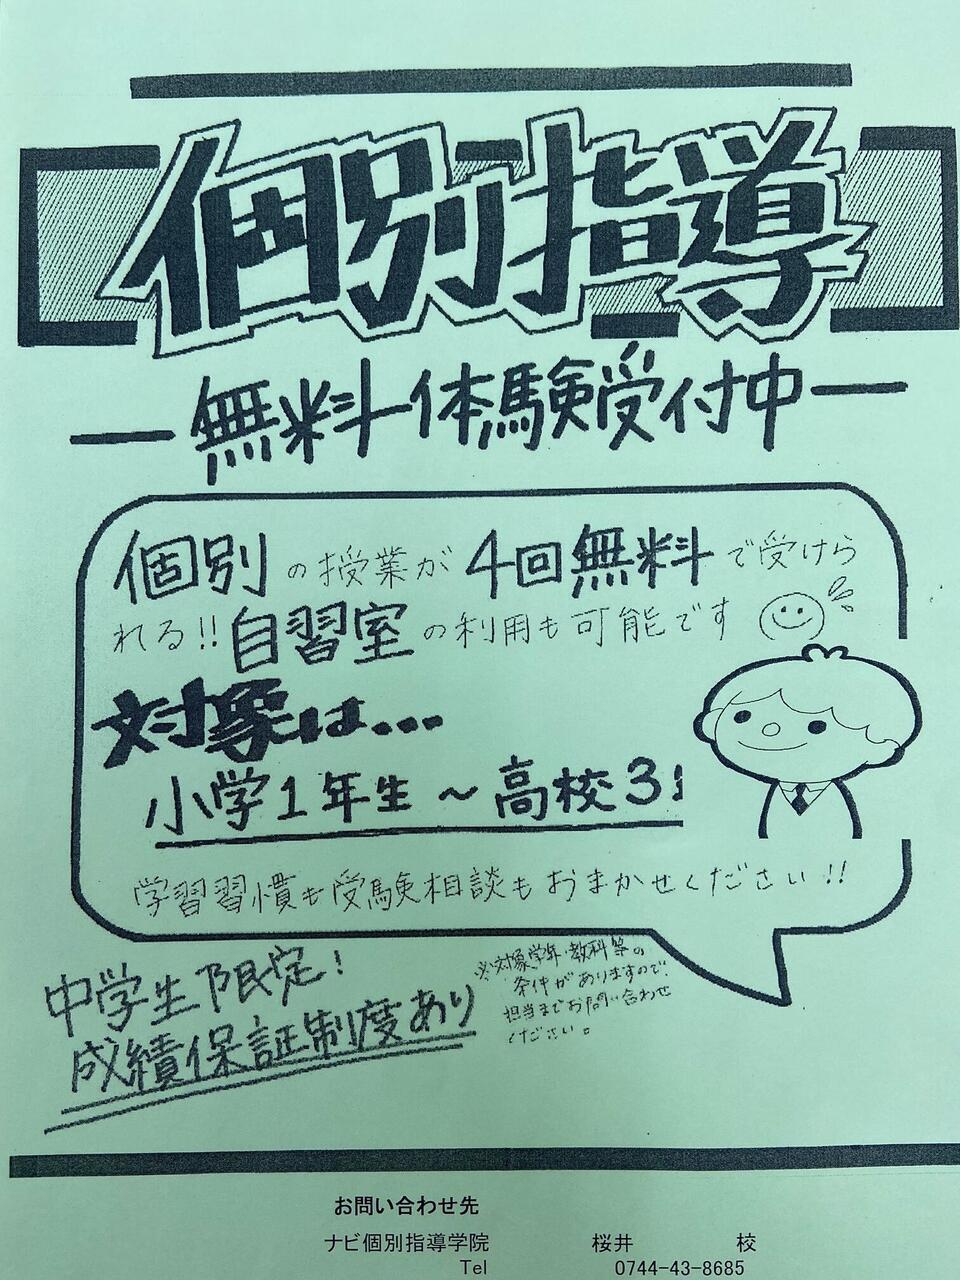 個別指導
無料体験受付中
個別の授業が4回無料で受けら
れる!!自習室の利用も可能です
対象は...
小学1年生～高校3
学習習慣も受験相談もおまかせください!!
中学生限定!
成績保証制度あり
※対象学年・教科等の
条件がありますので、
担当までお問い合わせ
ください。
お問い合わせ先
ナビ個別指導学院 桜井 校
Tel 0744-43-8685